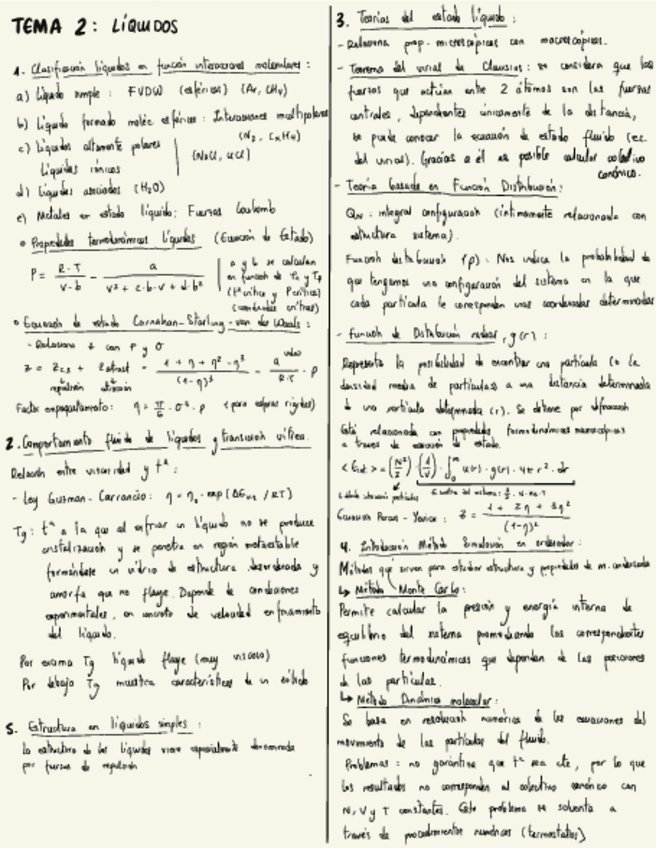 TEMA 2: LÍQUIDOS
1. Clasificación líquidos en función interacciones moleculares:
a) Líquido simple: FVDW (esféricos) (Ar, CH4)
b) Líquido formado moléc esféricos: Interacciones multipolares
(N2, CxHy)
c) Líquidos altamente polares
Líquidos iónicos
(NaCl, KCl)
d) Líquidos asociados (H2O)
e) Metales en estado líquido: Fuerzas Coulomb
Propiedades termodinámicas líquidos (Ecuación de Estado)
P = R·T / V-b - a / V² + c·b·V + d·b²
a y b se calculan
en función de
(tª crítica y P crítica)
(coordenadas críticas)
Ecuación de estado Carnahan-Starling-van der Waals:
- Relaciona z con ρ y σ
z = zcs + zatract = 1 + η + η² - η³ / (1-η)³ - a / R·T · ρ
repulsión atracción
Factor empaquetamiento: η = π/6 · σ³ · ρ (para esferas rígidas)
2. Comportamiento fluido de líquidos y transición vítrea.
Relación entre viscosidad y tª:
- Ley Guzman-Carrancio: η = η0 · exp (ΔEvis / RT)
Tg: tª a la que al enfriar un líquido no se produce
cristalización y se penetra en región metaestable
formándose un vidrio de estructura desordenada y
amorfa que no fluye. Depende de condiciones
experimentales, en concreto de velocidad enfriamiento
del líquido.
Por encima Tg líquido fluye (muy viscoso)
Por debajo Tg muestra características de un sólido
5. Estructura en líquidos simples:
La estructura de los líquidos viene especialmente
por fuerzas de repulsión
3. Teorías del estado líquido:
- Relaciona prop. microscópicas con macroscópicas.
- Teorema del virial de Clausius: se considera que las
fuerzas que actúan entre 2 átomos son las fuerzas
centrales, dependientes únicamente de la distancia,
se puede conocer la ecuación de estado fluido (ec.
del virial). Gracias a él es posible calcular colectivo
canónico.
- Teoría basada en Función Distribución:
QN: integral configuración (íntimamente relacionada con
estructura sistema).
Función distribución (ρ): Nos indica la probabilidad de
que tengamos una configuración del sistema en la que
cada partícula le corresponden unas coordenadas determinadas
- Función de Distribución radial, g(r):
Representa la posibilidad de encontrar una partícula (o la
densidad media de partículas) a una distancia determinada
de una partícula determinada (r). Se obtiene por difracción
Está relacionada con propiedades termodinámicas macroscópicas
a través de ecuación de estado.
= (N²/2) · (1/V) · ∫0∞ u(r) · g(r) · 4πr² · dr
Ecuación Percus-Yevick: z = 1 + 2η + 3η² / (1-η)²
4. Introducción Método Simulación en ordenador:
Métodos que sirven para estudiar estructura y propiedades de m. condensada
↳ Método Monte Carlo:
Permite calcular la presión y energía interna de
equilibrio del sistema promediando las correspondientes
funciones termodinámicas que dependen de las posiciones
de las partículas.
↳ Método Dinámica molecular:
Se basa en resolución numérica de las ecuaciones del
movimiento de las partículas del fluido.
Problemas: no garantiza que tª sea cte, por lo que
los resultados no corresponden al colectivo canónico con
N, V y T constantes. Este problema se solventa a
través de procedimientos numéricos (termostatos)